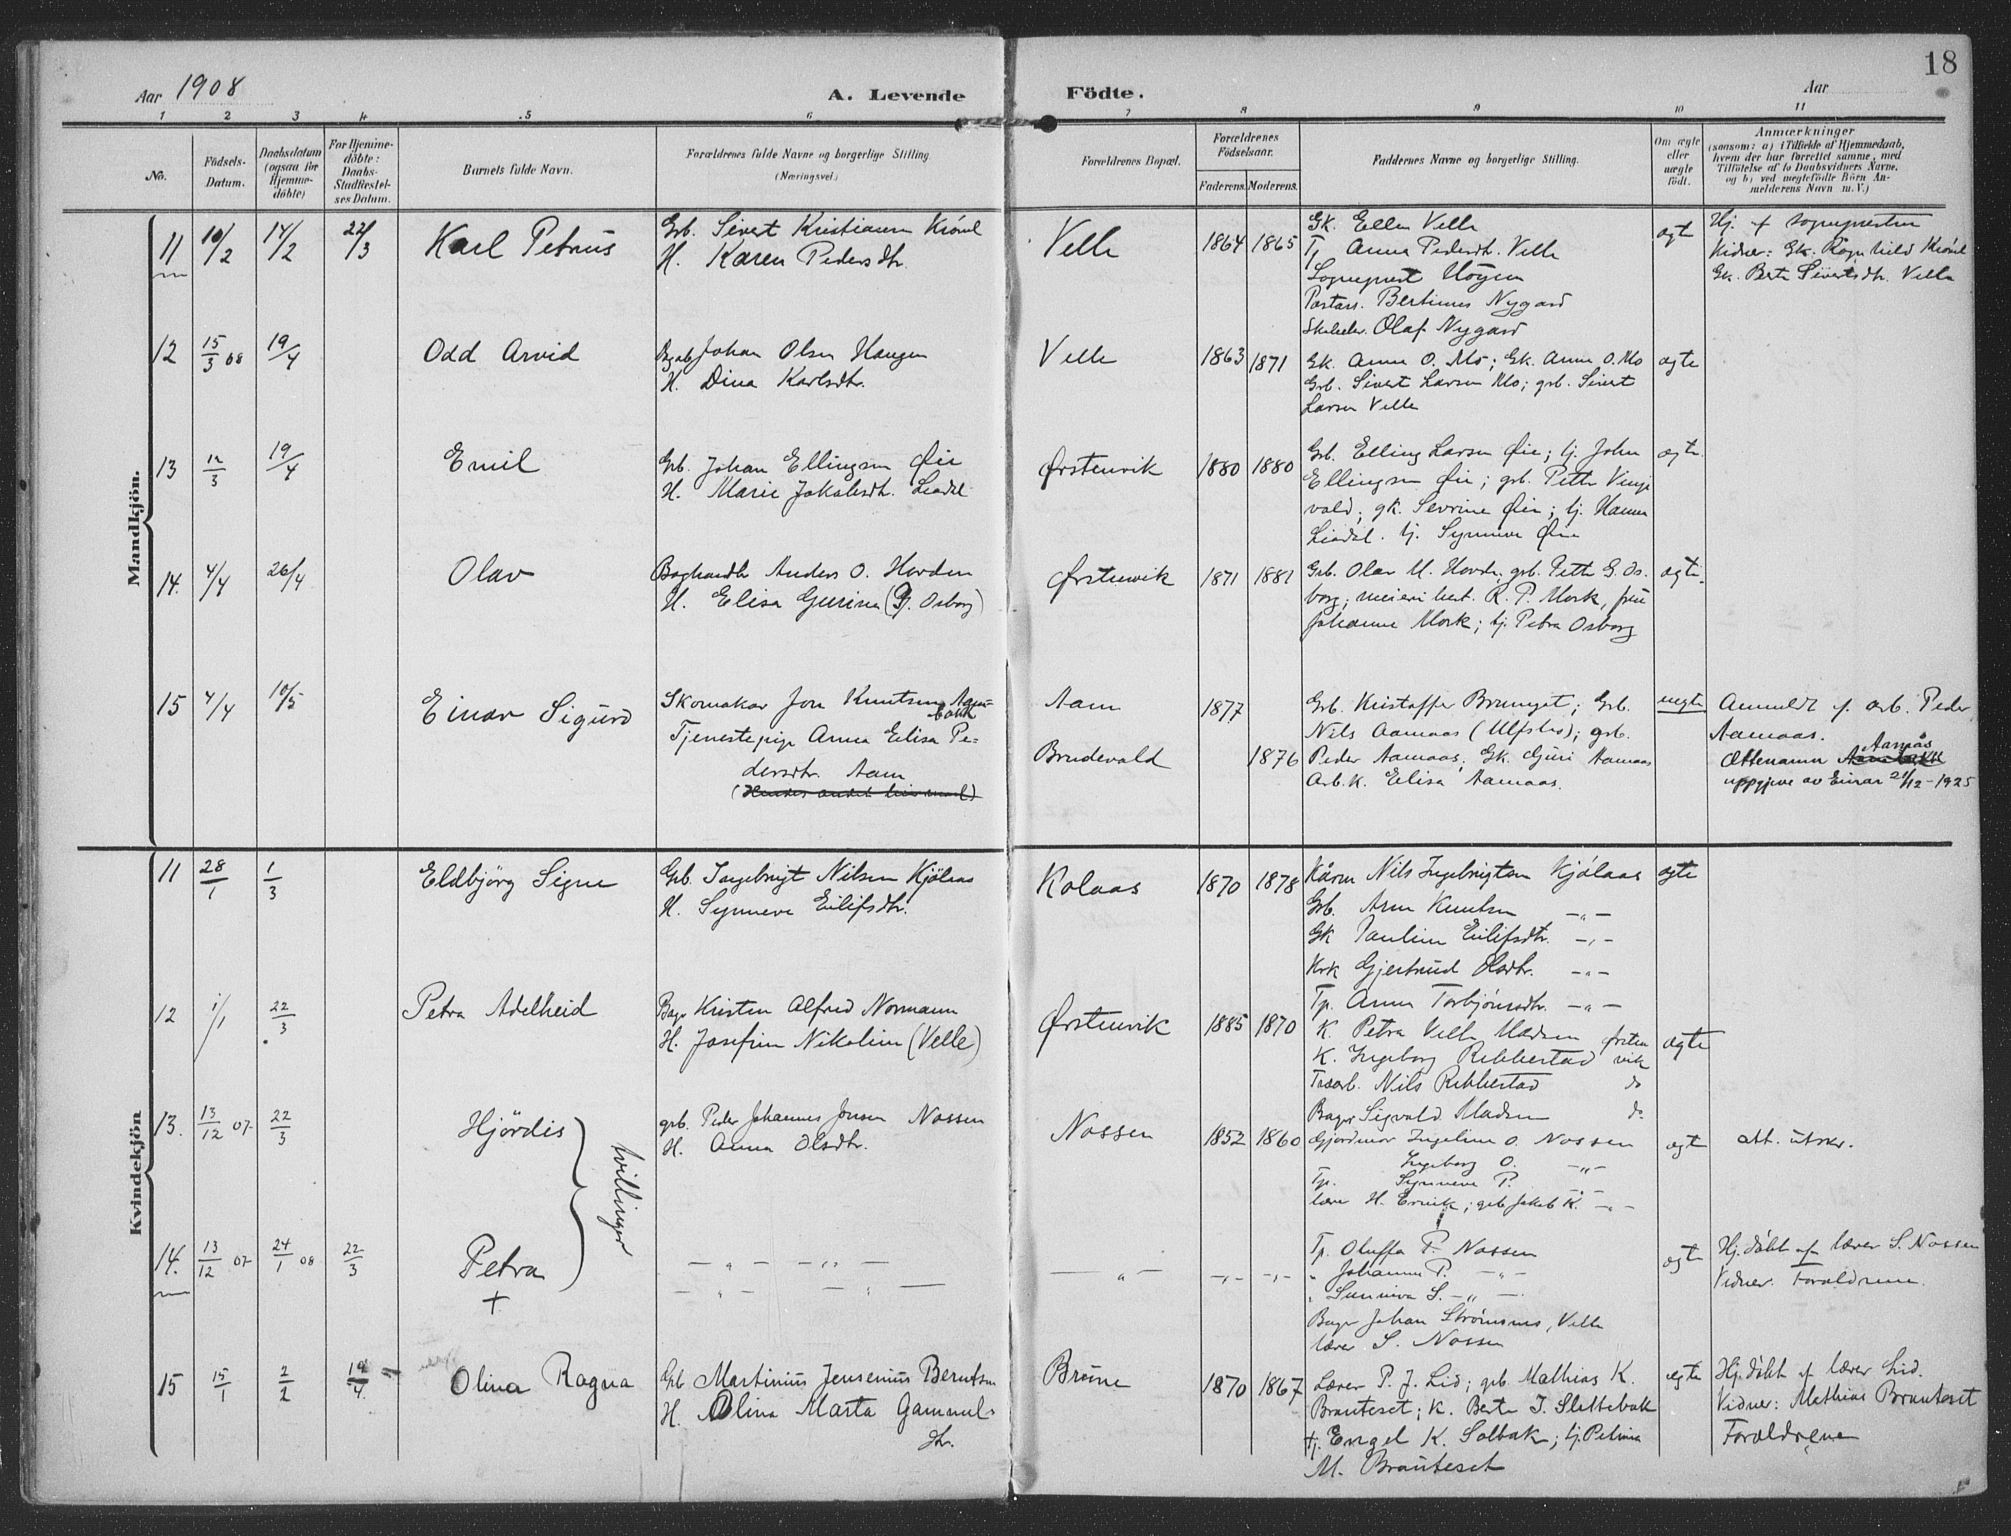 18
Aar 1908
A. Levende
Födte.
Aar
1 2 3 4 5 6 7 8 9 10 11
No.
Födsels-Datum.
Daabsdatum (ogsaa for Hjemme-döbte)
For Hjemme-döbte: Daabs-Stadfæstel-ses Datum.
Barnets fulde Navn.
Forældrenes fulde Navne og borgerlige Stilling
(Næringsvei.)
Forældrenes Bopæl.
Forældrenes Födselsaar.
Faderens. Moderens.
Faddernes Navne og borgerlige Stilling.
Om ægte eller uægte født.
Anmærkninger
(saasom: a) i Tilfælde af Hjemmedaab,
hvem der har forrettet samme, med
Tilföielse af to Daabsvidners Navne.
og b) ved uægtefödte Börn An-
melderens Navn m. V.)
Mandkjön.
11 10/2 14/2 22/3 Karl Petrus
Grb. Sivert Kristiansen
H. Karen Pedersdtr.
Velle 1864 1865
Gk. Ellen Velle
Tj Anna Pedersdt. Velle
Sogneprest Högen
Bertinus Nygard
Olaf Nygard
ægte
Hj. af sognepresten
Vidner: Gk. Ragnhild
Gk. Berte Sivertsdtr. Velle
12 15/3 08 19/4 Odd Arvid
Johan Olsen Haugen
H. Dina Karlsdtr.
Velle 1863 1871
Gk. Anna O. Mo; Gk. Anne O. Mo
Grb. Sivert Larsen Mo; grb. Sivert
Larsen Velle
ægte
13 12/3 19/4 Emil
Grb. Johan Ellingsen Øie
H. Marie Jakobsdtr. Liadal
Ørstenvik 1880 1880
Grb. Elling Larsen Øie; tj. John
Ellingsen Øie; grb. Petter
gk. Sevrine Øie; tj. Hanna
Liadal. tj. Synneve Øie
ægte
14. 4/4 26/4 Olav
Boghandler Anders O. Hovden
H. Elisa Gurina (G. Osborg)
Ørstenvik 1871 1881
Grb. Olav M. Hovde, grb. Petter G. Os-
borg; meieribest. R. P. Mork, frue
Johanne Mork; tj. Petra Osborg
ægte
15 4/4 10/5 Einar Sigurd
Skomakar Jon Knutsen Aam-
bakk
Tjenestepige Anna Elisa Pe-
dersdtr. Aam.
Aam 1877
Brudevold 1876
Grb. Kristoffer Brunget; Grb.
Nils Aamaas (Ulfsten); grb.
Peder Aamaas, Gk. Guri Aamaas
Arb.k. Elisa Aamaas.
uegte
Anmeldt af arb. Peder
Aamaas.
Aamås
Ættenamn Aambakk
uppgjeve av Einar 21/12-1925
Kvindekjön
11 28/1 1/3 Eldbjörg Signe
Grb. Ingebrigt Nilsen Kjölaas
H. Synneve Eilifsdtr.
Kolaas 1870 1878
Kårm Nils Ingebrigtsen Kjölaas
Grb. Arne Knutsen -„-
Gk Pauline Eilifsdtr. -„-
Krk Gjertrud Olsdtr. -„-
Tp. Anna Torbjörnsdtr. -„-
ægte
12 1/1 22/3 Petra Adelheid
Bager Kristen Alfred Normann
H. Josefine Nikoline (Velle)
Ørstenvik 1885 1870
K Petra Velle Madsen Ørsten
K. Ingeborg Ribbestad vik
Nils Ribbestad do
Bager Sigvald Madsen do.
ægte
13. 13/12 07 22/3 Hjördis
tvillinger
grb. Peder Johannes Jonsen Nossen
H. Anna Olsdtr.
Nossen 1852 1860
Gjordmor Ingeline O. Nossen
Ingeborg O. -„-
Tp. Synneve P. -„-
lærer H. Ervik; grb. Jakob K. -„-
ægte
att. utskr.
14. 13/12 07 24/1 08 22/3 Petra
+
-„- -„-
-„- -„-
-„- -„- -„-
Tp. Oluffa P. Nossen
„ Johanne P. -„-
„ Sunniva S. -„-
Bager Johan Strömsnes, Velle
lærer S. Nossen
ægte
Hj.döbt af lærer S. Nossen
Vidner. Forældrene.
15 15/1 2/2 19/4 Olina Ragna
Grb Martinius Jensenius Berntsen
H. Olina Marta Gammels-
dtr.
Brune 1870 1867
Lærer P. J. Lid; grb. Mathias K.
Brauteset; K. Berte J. Slettebak
tj. Engel K. Solbak; tj. Petrina
M. Brauteset
ægte
Hj.döbt af lærer Lid.
Vidner: Mathias Brauteset
Forældrene